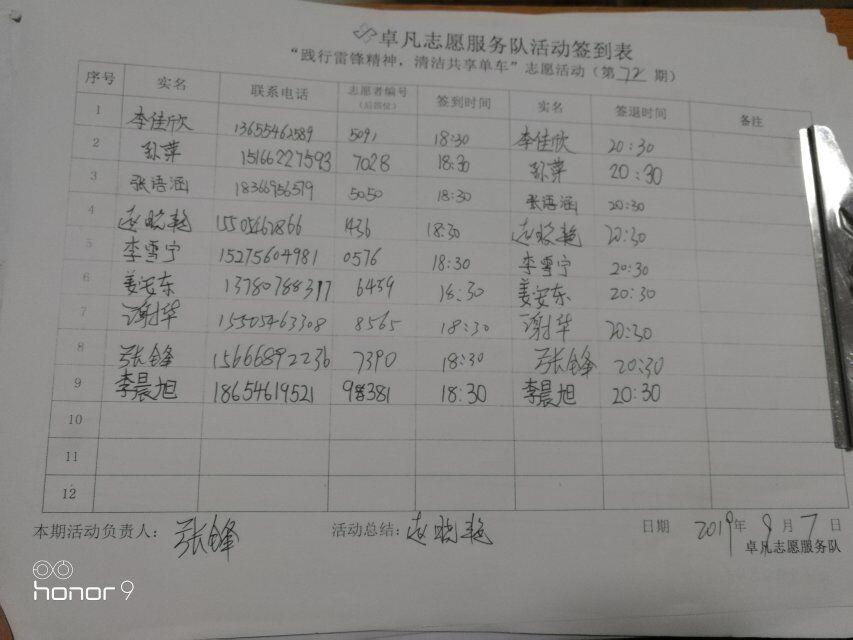 卓凡志愿服务队活动签到表
“践行雷锋精神，清洁共享单车”志愿活动（第72期）
序号 实名 联系电话 志愿者编号（后四位） 签到时间 实名 签退时间 备注
1 李佳欣 13655462589 5091 18:30 李佳欣 20:30
2 孙萍 15166227593 7028 18:30 孙萍 20:30
3 张语涵 18366956579 5050 18:30 张语涵 20:30
4 赵晓艳 1436 18:30 赵晓艳 20:30
5 李雪宁 15275604981 0576 18:30 李雪宁 20:30
6 姜安东 13780788317 6459 18:30 姜安东 20:30
7 谢华 15505463308 8565 18:30 谢华 20:30
8 张锋 15666892236 7390 18:30 张锋 20:30
9 李晨旭 18654619521 98381 18:30 李晨旭 20:30
10
11
12
本期活动负责人：张锋 活动总结：赵晓艳 日期 2019年9月7日
卓凡志愿服务队
honor 9